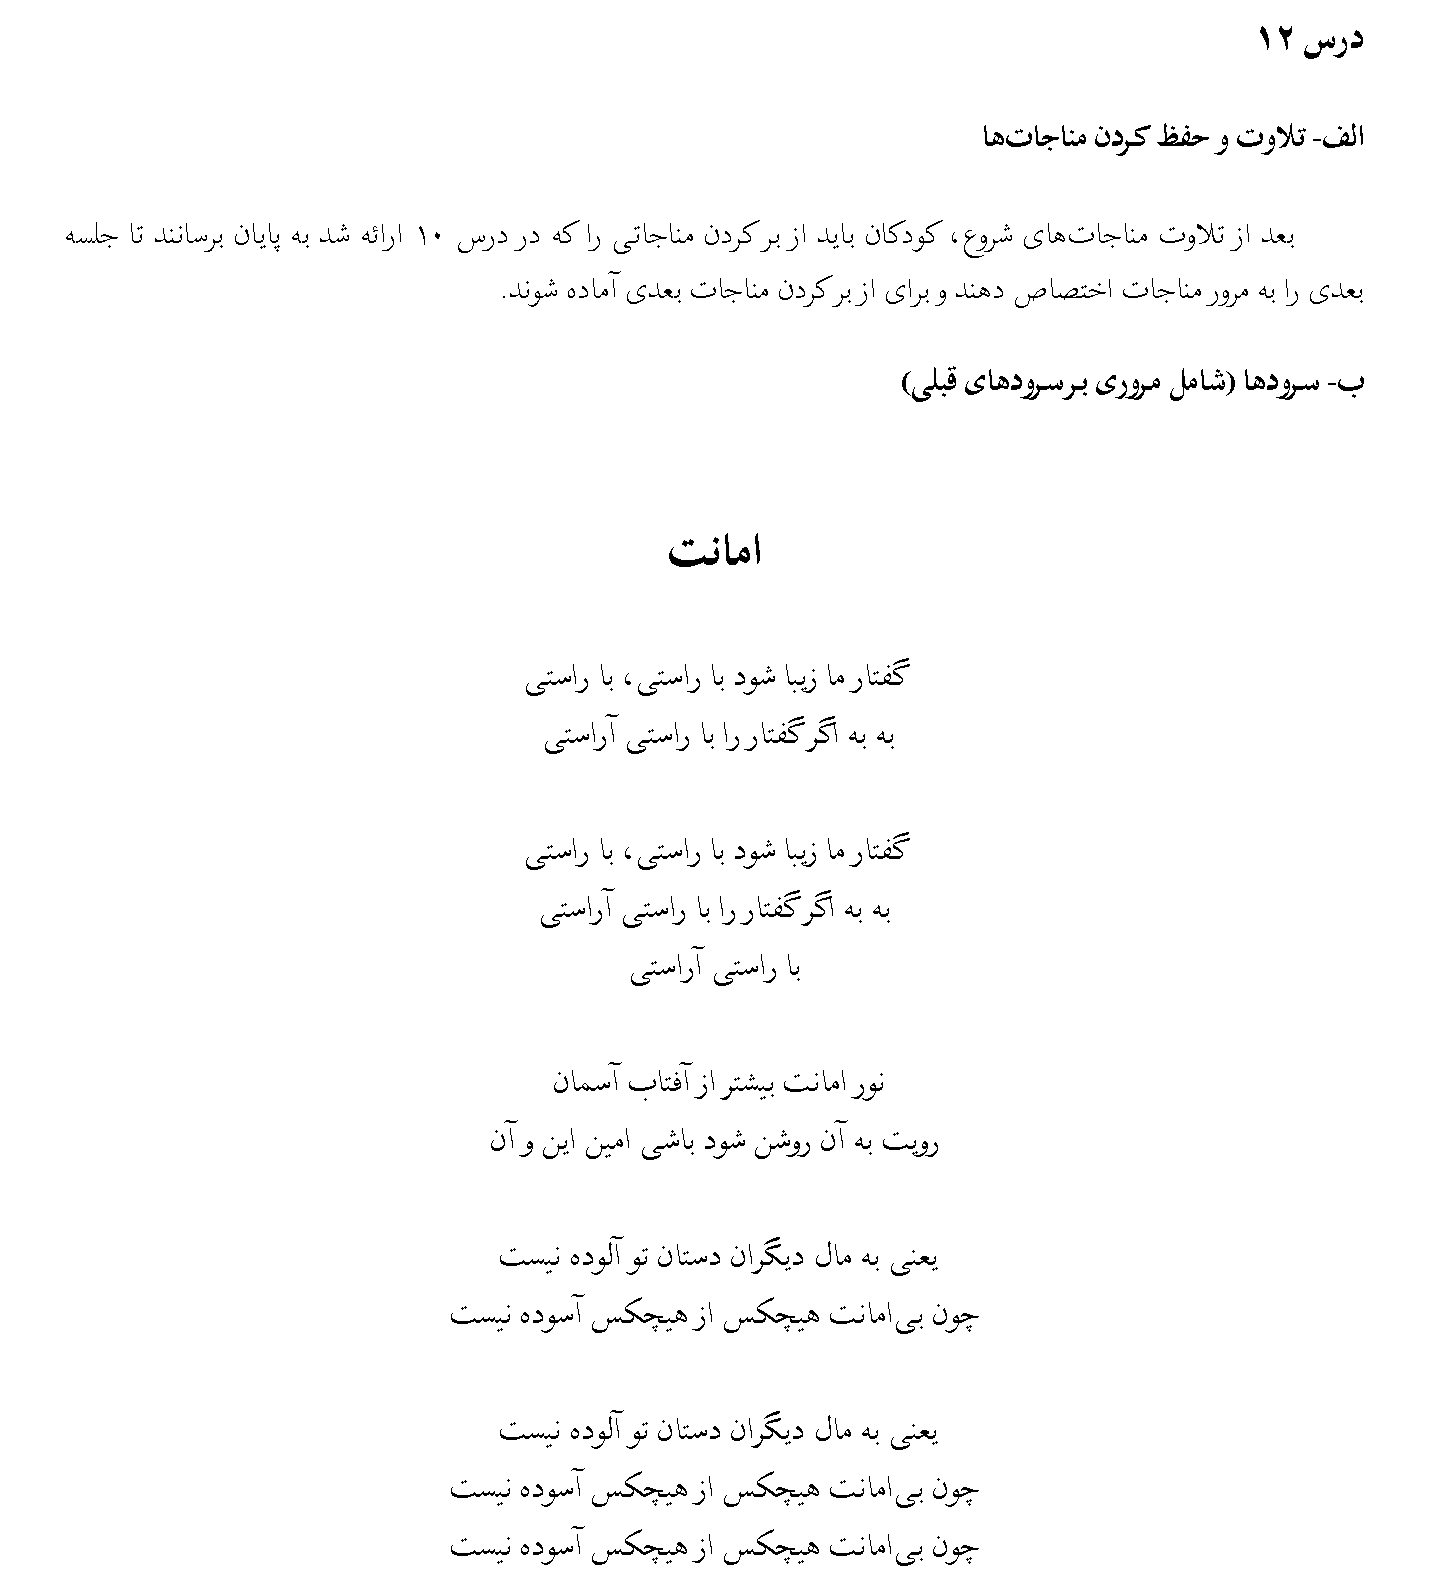 درس ۱۲
الف- تلاوت و حفظ کردن مناجات‌ها
بعد از تلاوت مناجات‌های شروع، کودکان باید از بر کردن مناجاتی را که در درس ۱۰ ارائه شد به پایان برسانند تا جلسه
بعدی را به مرور مناجات اختصاص دهند و برای از بر کردن مناجات بعدی آماده شوند.
ب- سرودها (شامل مروری بر سرودهای قبلی)
امانت
گفتار ما زیبا شود با راستی، با راستی
به به اگر گفتار را با راستی آراستی
گفتار ما زیبا شود با راستی، با راستی
به به اگر گفتار را با راستی آراستی
با راستی آراستی
نور امانت بیشتر از آفتاب آسمان
رویت به آن روشن شود باشی امین این و آن
یعنی به مال دیگران دستان تو آلوده نیست
چون بی‌امانت هیچکس از هیچکس آسوده نیست
یعنی به مال دیگران دستان تو آلوده نیست
چون بی‌امانت هیچکس از هیچکس آسوده نیست
چون بی‌امانت هیچکس از هیچکس آسوده نیست